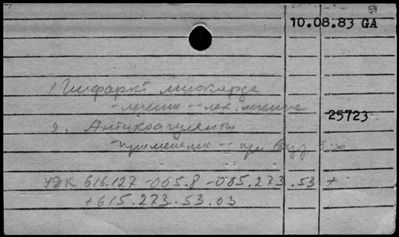 10.08.83 GA
1. Инфаркт миокарда
- лечение -- лек. лечение
25723
2. Антикоагулянты
- применение -- при
УДК 616.127-005.8-085.273.53 +
+615.273.53.03